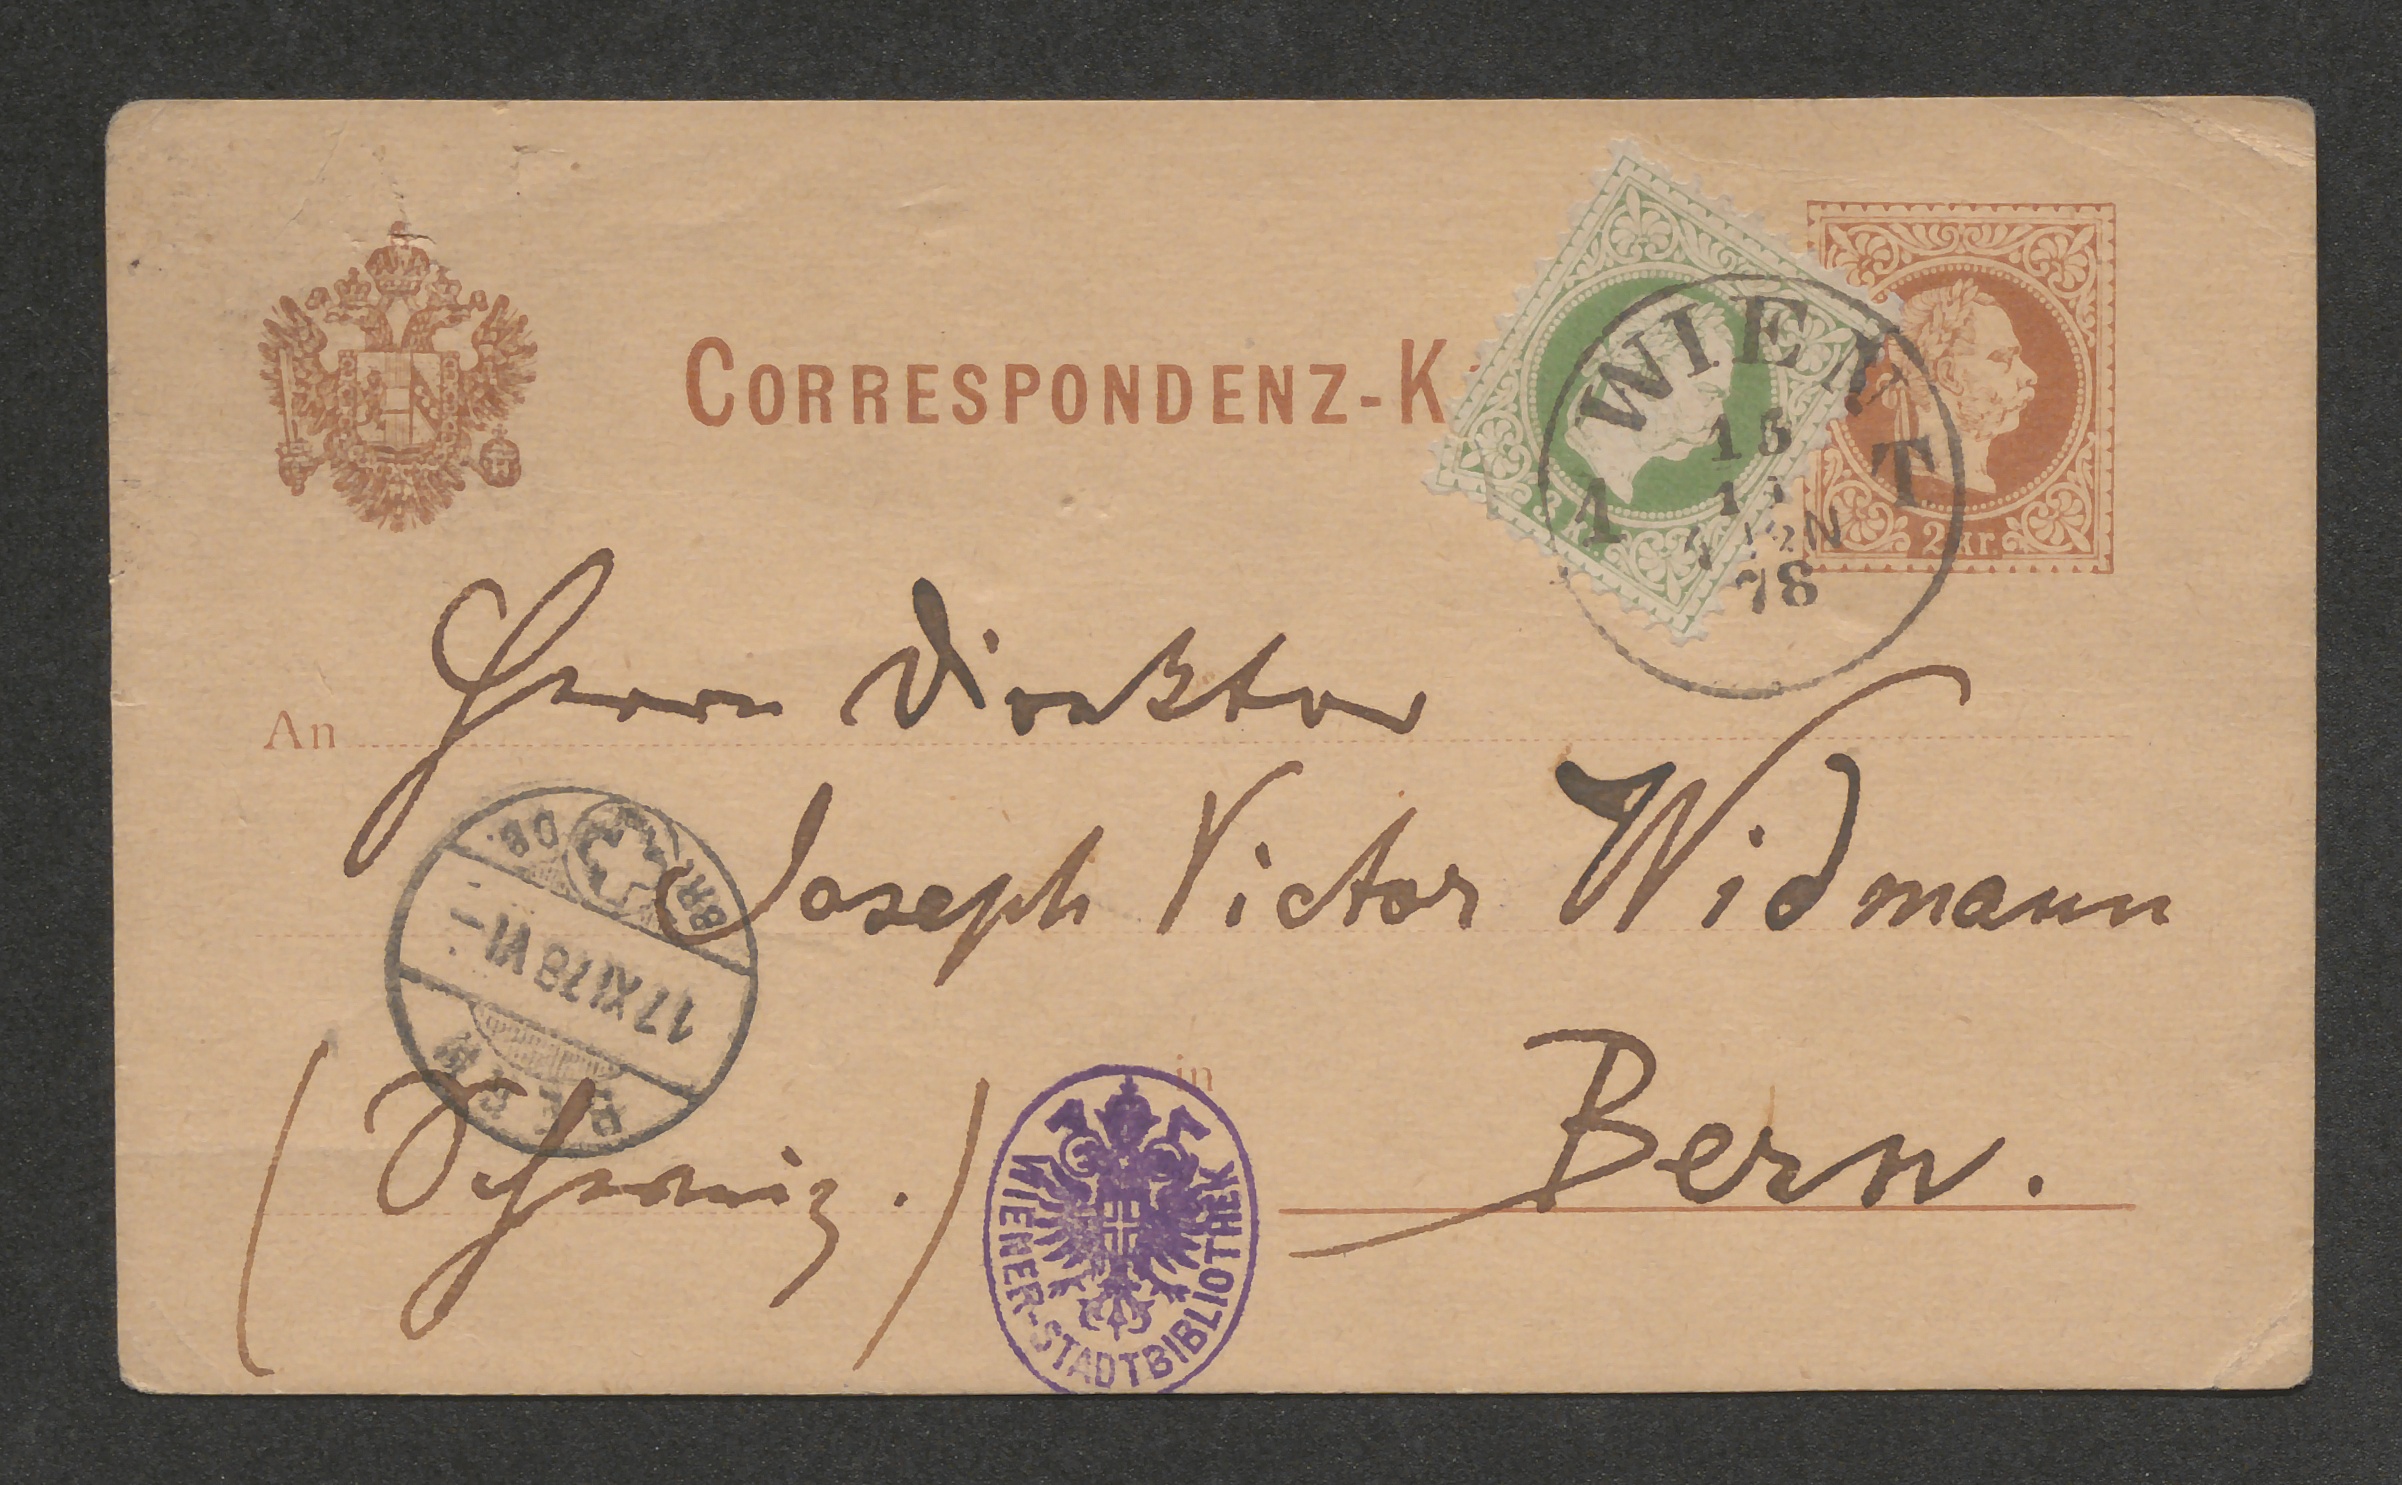 CORRESPONDENZ-K
3 kr
2 kr.
WIEN
1 T
15
11
78
An Herrn Direktor
Joseph Victor Widmann
BR. OB.
17 XI 78 VI
BERN
in
Bern.
(Schweiz.)
WIENER-STADTBIBLIOTHEK